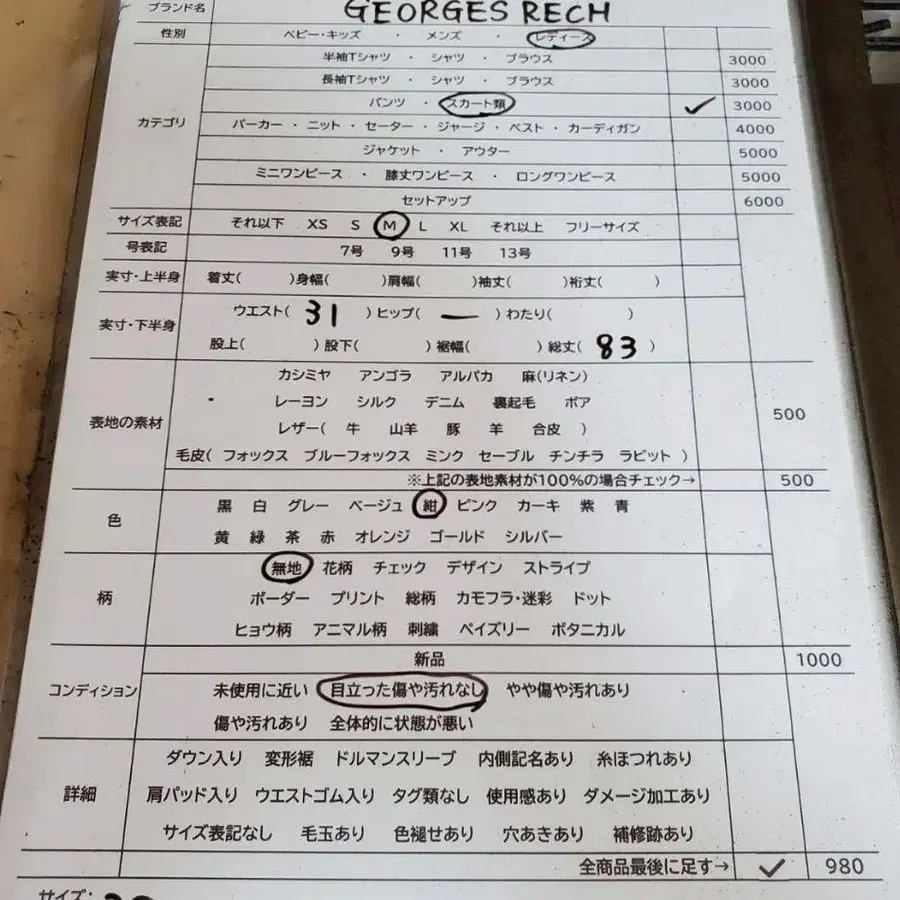 ブランド名 GEORGES RECH
性別 ベビー・キッズ ・ メンズ ・ レディース
カテゴリ
半袖Tシャツ ・ シャツ ・ ブラウス 3000
長袖Tシャツ ・ シャツ ・ ブラウス 3000
パンツ ・ スカート類 ✓ 3000
パーカー ・ ニット ・ セーター ・ ジャージ ・ ベスト ・ カーディガン 4000
ジャケット ・ アウター 5000
ミニワンピース ・ 膝丈ワンピース ・ ロングワンピース 5000
セットアップ 6000
サイズ表記 それ以下 XS S M L XL それ以上 フリーサイズ
号表記 7号 9号 11号 13号
実寸・上半身 着丈( )身幅( )肩幅( )袖丈( )裄丈( )
実寸・下半身
ウエスト( 31 )ヒップ( ー )わたり( )
股上( )股下( )裾幅( )総丈( 83 )
表地の素材
カシミヤ アンゴラ アルパカ 麻(リネン)
レーヨン シルク デニム 裏起毛 ボア 500
レザー( 牛 山羊 豚 羊 合皮 )
毛皮( フォックス ブルーフォックス ミンク セーブル チンチラ ラビット )
※上記の表地素材が100%の場合チェック→ 500
色
黒 白 グレー ベージュ 紺 ピンク カーキ 紫 青
黄 緑 茶 赤 オレンジ ゴールド シルバー
柄
無地 花柄 チェック デザイン ストライプ
ボーダー プリント 総柄 カモフラ・迷彩 ドット
ヒョウ柄 アニマル柄 刺繍 ペイズリー ボタニカル
コンディション
新品 1000
未使用に近い 目立った傷や汚れなし やや傷や汚れあり
傷や汚れあり 全体的に状態が悪い
詳細
ダウン入り 変形裾 ドルマンスリーブ 内側記名あり 糸ほつれあり
肩パッド入り ウエストゴム入り タグ類なし 使用感あり ダメージ加工あり
サイズ表記なし 毛玉あり 色褪せあり 穴あきあり 補修跡あり
全商品最後に足す→ ✓ 980
サイズ: